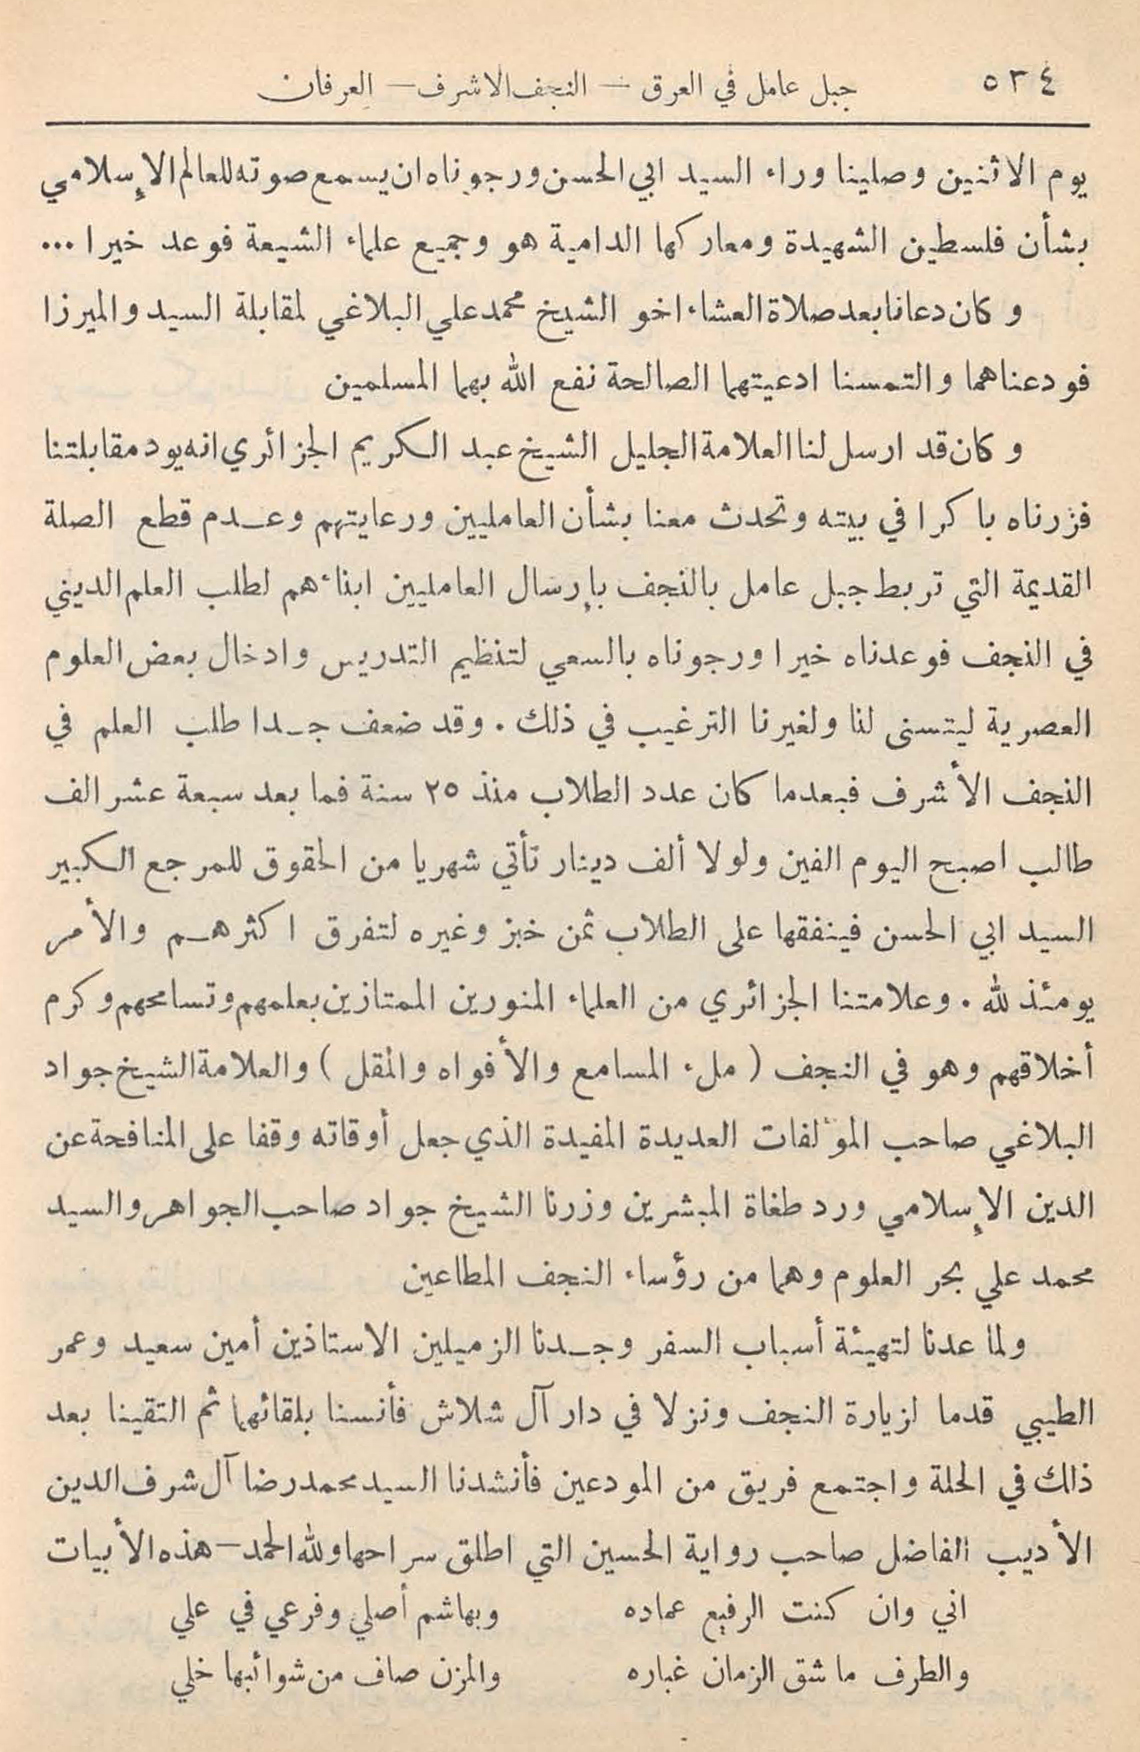 ٥٣٤ جبل عامل في العرق — النجف الاشرف — العرفان
يوم الاثنين وصلينا وراء السيد ابي الحسن ورجوناه ان يسمع صوته للعالم الإسلامي
بشأن فلسطين الشهيدة ومعاركها الدامية هو وجميع علماء الشيعة فوعد خيرا ...
وكان دعانا بعد صلاة العشاء اخو الشيخ محمد علي البلاغي لمقابلة السيد والميرزا
فودعناهما والتمسنا ادعيتهما الصالحة نفع الله بهما المسلمين
وكان قد ارسل لنا العلامة الجليل الشيخ عبد الكريم الجزائري انه يود مقابلتنا
فزرناه باكرا في بيته وتحدث معنا بشأن العامليين ورعايتهم وعدم قطع الصلة
القديمة التي تربط جبل عامل بالنجف بإرسال العامليين ابناءهم لطلب العلم الديني
في النجف فوعدناه خيرا ورجوناه بالسعي لتنظيم التدريس وادخال بعض العلوم
العصرية ليتسنى لنا ولغيرنا الترغيب في ذلك . وقد ضعف جدا طلب العلم في
النجف الأشرف فبعدما كان عدد الطلاب منذ ٢٥ سنة فما بعد سبعة عشر الف
طالب اصبح اليوم الفين ولولا ألف دينار تأتي شهريا من الحقوق للمرجع الكبير
السيد ابي الحسن فينفقها على الطلاب ثمن خبز وغيره لتفرق اكثرهم والأمر
يومئذ لله . وعلامتنا الجزائري من العلماء المنورين الممتازين بعلمهم وتسامحهم وكرم
أخلاقهم وهو في النجف ( ملء المسامع والأفواه والمقل ) والعلامة الشيخ جواد
البلاغي صاحب المؤلفات العديدة المفيدة الذي جعل أوقاته وقفا على المنافحة عن
الدين الإسلامي ورد طغاة المبشرين وزرنا الشيخ جواد صاحب الجواهر والسيد
محمد علي بحر العلوم وهما من رؤساء النجف المطاعين
ولما عدنا لتهيئة أسباب السفر وجدنا الزميلين الاستاذين أمين سعيد وعمر
الطيبي قدما لزيارة النجف ونزلا في دار آل شلاش فأنسنا بلقائهما ثم التقينا بعد
ذلك في الحلة واجتمع فريق من المودعين فأنشدنا السيد محمد رضا آل شرف الدين
الأديب الفاضل صاحب رواية الحسين التي اطلق سراحها ولله الحمد — هذه الأبيات
اني وان كنت الرفيع عماده وبهاشم أصلي وفرعي في علي
والطرف ما شق الزمان غباره والمزن صاف من شوائبها خلي